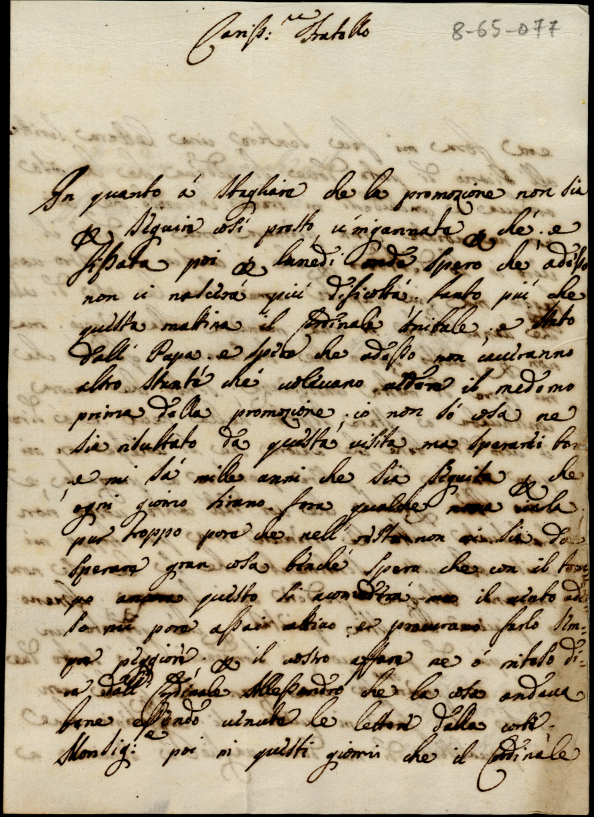 8-65-077
Cariss: mo Fratello
In quanto à sbagliare che la promozione non sia
P seguire così presto v'ingannate P che è
fissata poi P lunedì onde spero che adesso
non ci nascerà più dificoltà tanto più che
questa mattina il Cardinale Anibale è stato
dall Papa e spero che adesso non ci saranno
altro che volevano il medemo
prima della promozione io non sò cosa ne
sia risultato da questa visita ma sperarei ben
e mi sà mille anni che sia seguita P che
ogni giorno tirano fora qualche
pur troppo pare che nell resto non vi sia da
sperare gran cosa benchè spera che con il tem
po questo si il
pare assai cattivo e procurano farlo sem-
pre peggiore. P il vostro affare ne ò di-
re dall Cardinale Alessandro che la cosa andava
bene essendo venute le lettere della corte.
Monsig: e poi in questi giorni che il Cardinale